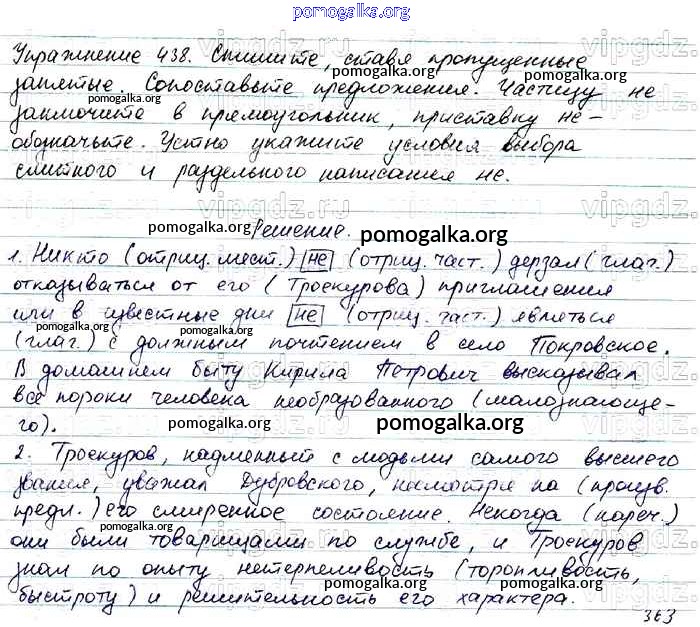 pomogalka.org
Упражнение 438. Спишите, ставя пропущенные
запятые. Сопоставьте предложения. Частицу не
заключите в прямоугольник, приставку не-
обозначьте. Устно укажите условия выбора
слитного и раздельного написания не.
Решение.
1. Никто (отриц. мест.) не (отриц. част.) дерзал (глаг.)
отказываться от его (Троекурова) приглашения
или в известные дни не (отриц. част.) являться
(глаг.) с должным почтением в село Покровское.
В домашнем быту Кирила Петрович высказывал
все пороки человека необразованного (малознающе-
го).
2. Троекуров, надменный с людьми самого высшего
звания, уважал Дубровского, несмотря на (произв.
предл.) его смиренное состояние. Некогда (нареч.)
они были товарищами по службе, и Троекуров
знал по опыту нетерпеливость (торопливость,
быстроту) и решительность его характера.
363